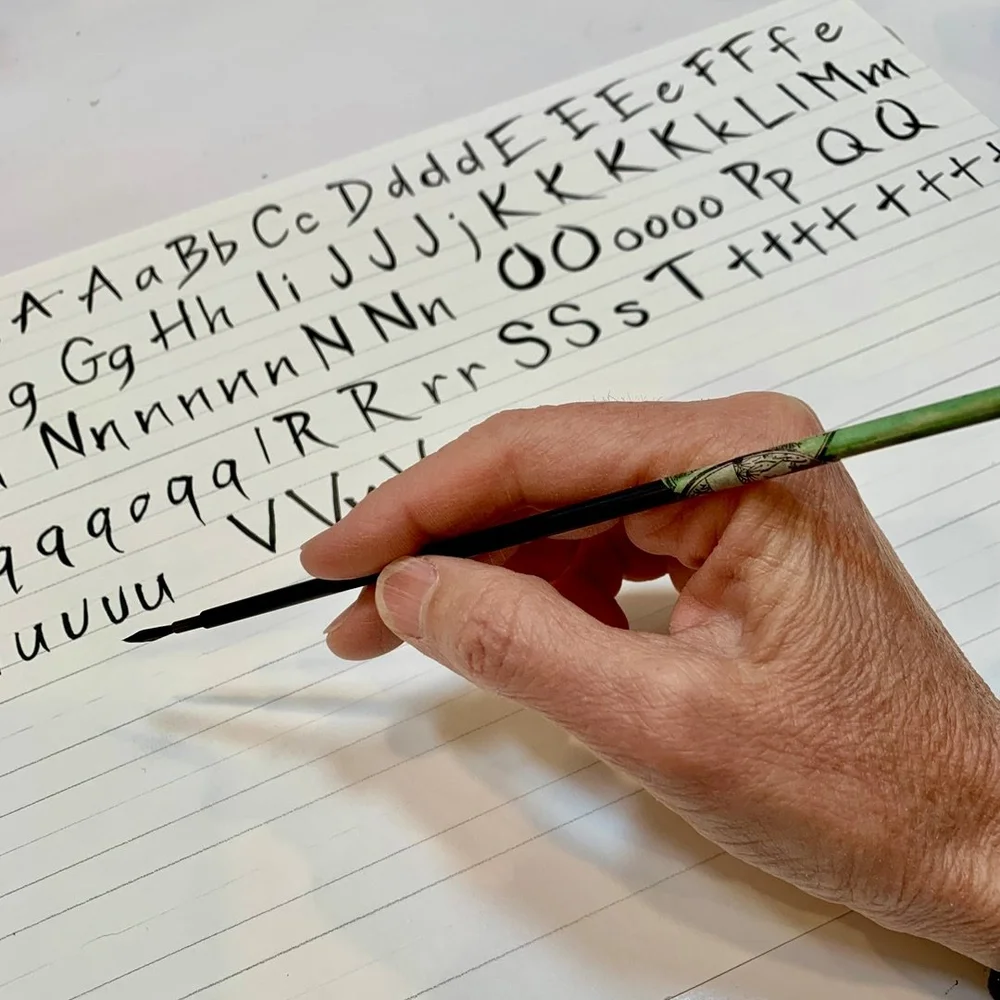 A A a B b C c D d d d d E E E e F F f e
g G g H h I i J J J j K K K K k L l M m
N n n n n n n N N n O O o o o o o P p Q Q
q q q o q q l R R r r S S s T t t t t t t t t
u u u u V V v V